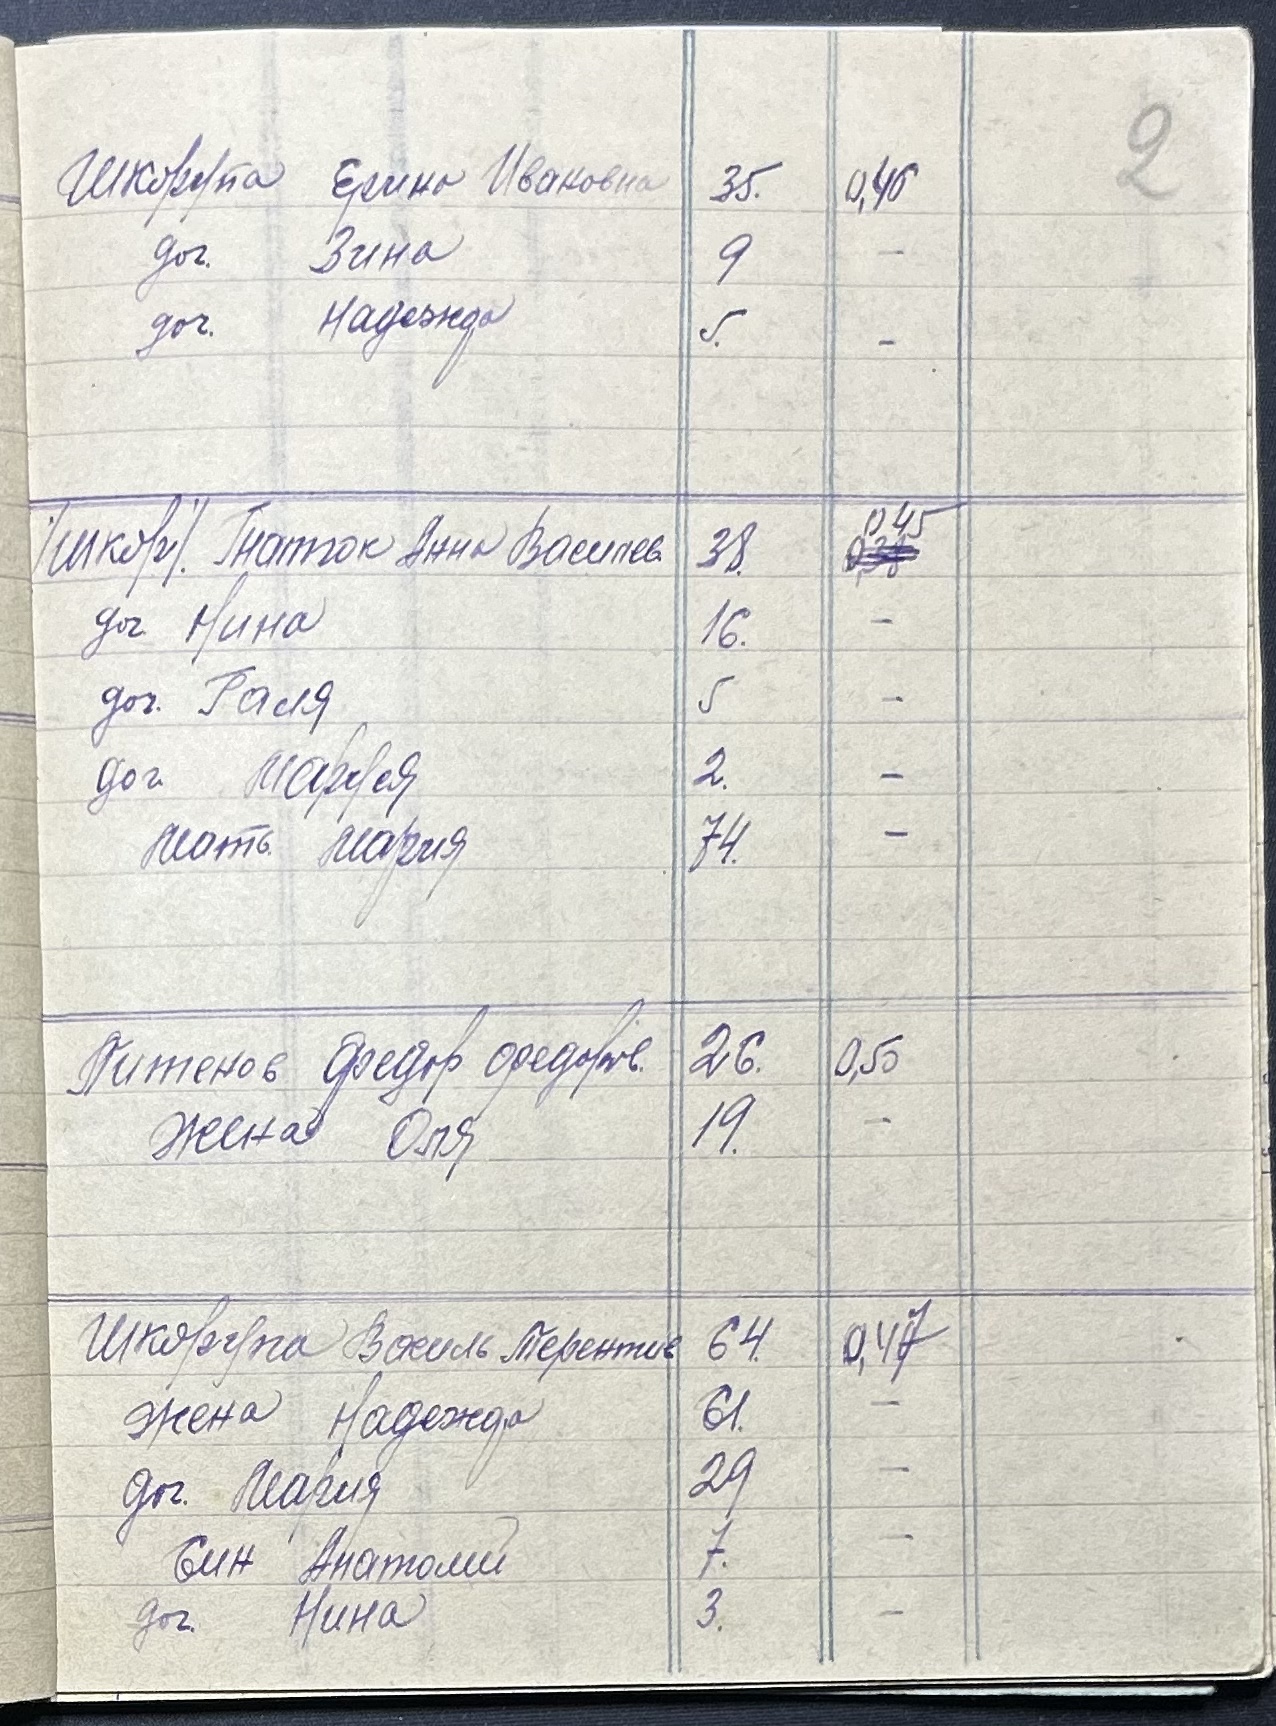 2
Шкорупа Ерина Ивановна 35. 0,46
доч. Зина 9 –
доч. Надежда 5. –
/Шкор/. Гнаток Анна Василев. 38. 0,45
доч. Нина 16. –
доч. Галя 5 –
доч. Маруся 2. –
Мать. Мария 74. –
Пименов Федор Федоров. 26. 0,50
Жена Оля 19. –
Шкорупа Василь Терентив 64. 0,47
жена Надежда 61. –
доч. Мария 29 –
Син Анатолий 7. –
доч. Нина 3. –